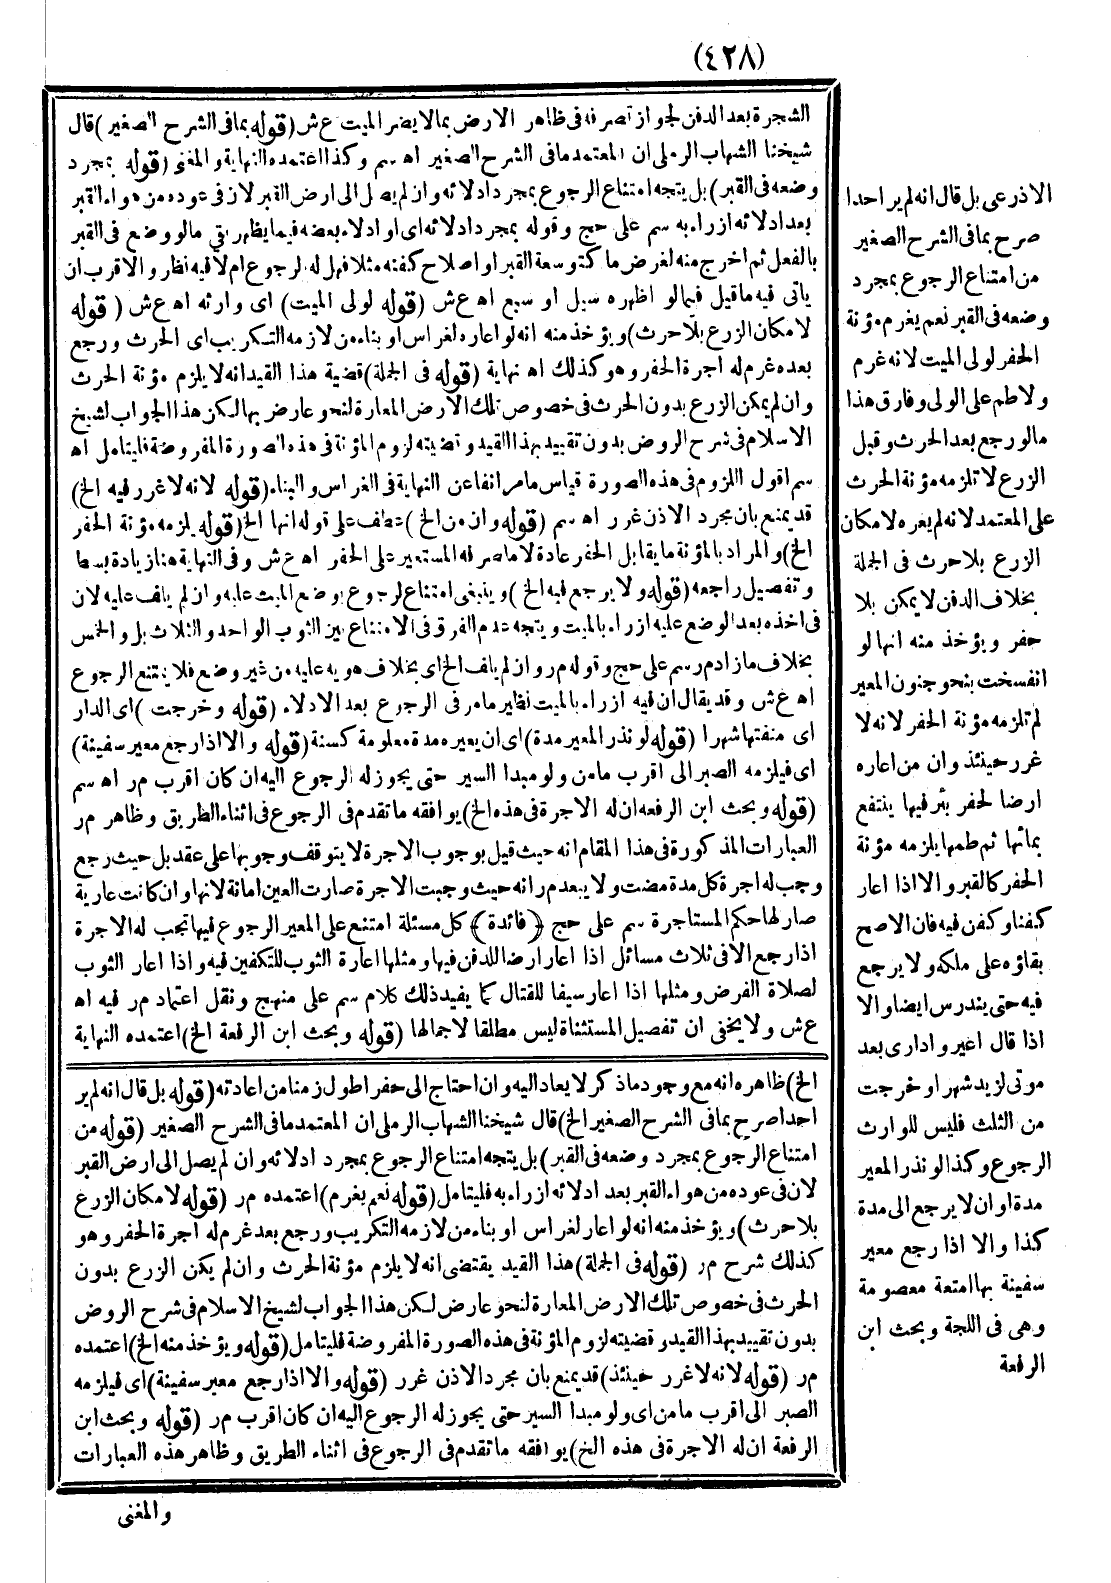 (٤٢٨)
الشجرة بعد الدفن لجواز تصرفه فى ظاهر الارض بما لا يضر الميت ع ش (قوله بما فى الشرح الصغير) قال
شيخنا الشهاب الرملى ان المعتمد ما فى الشرح الصغير اه سم وكذا اعتمده النهاية والمغنى (قوله بمجرد
وضعه فى القبر) بل يتجه امتناع الرجوع بمجرد ادلائه وان لم يصل الى ارض القبر لان فى عوده من هواء القبر
بعد ادلائه ازراء به سم على حج وقوله بمجرد ادلائه اى او ادلاء بعضه فيما يظهر بقي مالو وضع فى القبر
بالفعل ثم اخرج منه لغرض ما كتوسعة القبر او اصلاح كفنه مثلا فهل له الرجوع ام لا فيه نظر والاقرب ان
ياتى فيه ما قيل فيما لو اظهره سيل او سبع اه ع ش (قوله لولى الميت) اى وارثه اه ع ش (قوله
لامكان الزرع بلا حرث) ويؤخذ منه انه لو اعاره لغراس او بناء من لازمه التكريب اى الحرث ورجع
بعده غرم له اجرة الحفر وهو كذلك اه نهاية (قوله فى الجملة) قضية هذا القيد انه لا يلزم مؤنة الحرث
وان لم يمكن الزرع بدون الحرث فى خصوص تلك الارض المعارة لنحو عارض بها لكن هذا الجواب لشيخ
الاسلام فى شرح الروض بدون تقييد بهذا القيد وقضيته لزوم المؤنة فى هذه الصورة المفروضة فليتامل اه
سم اقول اللزوم فى هذه الصورة قياس ما مر انفا عن النهاية فى الغراس والبناء (قوله لانه لا غرر فيه الخ)
قد يمنع بان مجرد الاذن غرر اه سم (قوله وان من الخ) عطف على قوله انها الخ (قوله يلزمه مؤنة الحفر
الخ) والمراد بالمؤنة ما يقابل الحفر عادة لا ما صرفه المستعير على الحفر اه ع ش وفى النهاية هنا زيادة بسط
وتفصيل راجعه (قوله ولا يرجع فيه الخ) وينبغى امتناع لرجوع بوضع الميت عليه وان لم يلف عليه لان
فى اخذه بعد الوضع عليه ازراء بالميت ويتجه عدم الفرق فى الامتناع بين الثوب الواحد والثلاث بل والخمس
بخلاف ما زاد مر سم على حج وقوله مر وان لم يلف الخ اى بخلاف هويه عليه من غير وضع فلا يمتنع الرجوع
اه ع ش وقد يقال ان فيه ازراء بالميت نظير ما مر فى الرجوع بعد الادلاء (قوله وخرجت) اى الدار
اى منفتها شهرا (قوله لو نذر المعير مدة) اى ان يعيره مدة معلومة كسنة (قوله والا اذا رجع معير سفينة)
اى فيلزمه الصبر الى اقرب مامن ولو مبدا السير حتى يجوز له الرجوع اليه ان كان اقرب مر اه سم
(قوله وبحث ابن الرفعه ان له الاجرة فى هذه الخ) يوافقه ما تقدم فى الرجوع فى اثناء الطريق وظاهر مر
العبارات المذكورة فى هذا المقام انه حيث قيل بوجوب الاجرة لا يتوقف وجوبها على عقد بل حيث رجع
وجب له اجرة كل مدة مضت ولا يبعد مر انه حيث وجبت الاجرة صارت العين امانة لانها وان كانت عارية
صار لها حكم المستاجرة سم على حج (فائدة) كل مسئلة امتنع على المعير الرجوع فيها تجب له الاجرة
اذا رجع الا فى ثلاث مسائل اذا اعار ارضا للدفن فيها ومثلها اعارة الثوب للتكفين فيه واذا اعار الثوب
لصلاة الفرض ومثلها اذا اعار سيفا للقتال كما يفيد ذلك كلام سم على منهج ونقل اعتماد مر فيه اه
ع ش ولا يخفى ان تفصيل المستثناة ليس مطلقا لاجمالها (قوله وبحث ابن الرفعة الخ) اعتمده النهاية
الخ) ظاهره انه مع وجود ما ذكر لا يعاد اليه وان احتاج الى حفر اطول زمنا من اعادته (قوله بل قال انه لم ير
احدا صرح بما فى الشرح الصغير الخ) قال شيخنا الشهاب الرملى ان المعتمد ما فى الشرح الصغير (قوله من
امتناع الرجوع بمجرد وضعه فى القبر) بل يتجه امتناع الرجوع بمجرد ادلائه وان لم يصل الى ارض القبر
لان فى عوده من هواء القبر بعد ادلائه ازراء به فليتامل (قوله نعم يغرم) اعتمده مر (قوله لامكان الزرع
بلا حرث) ويؤخذ منه انه لو اعار لغراس او بناء من لازمه التكريب ورجع بعد غرم له اجرة الحفر وهو
كذلك شرح مر (قوله فى الجملة) هذا القيد يقتضى انه لا يلزم مؤنة الحرث وان لم يكن الزرع بدون
الحرث فى خصوص تلك الارض المعارة لنحو عارض لكن هذا الجواب لشيخ الاسلام فى شرح الروض
بدون تقييد بهذا القيد وقضيته لزوم المؤنة فى هذه الصورة المفروضة فليتامل (قوله ويؤخذ منه الخ) اعتمده
مر (قوله لانه لا غرر حينئذ) قد يمنع بان مجرد الاذن غرر (قوله والا اذا رجع معير سفينة) اى فيلزمه
الصبر الى اقرب مامن اى ولو مبدا السير حتى يجوز له الرجوع اليه ان كان اقرب مر (قوله وبحث ابن
الرفعة ان له الاجرة فى هذه الخ) يوافقه ما تقدم فى الرجوع فى اثناء الطريق وظاهر هذه العبارات
والمغنى
الاذرعى بل قال انه لم ير احدا
صرح بما فى الشرح الصغير
من امتناع الرجوع بمجرد
وضعه فى القبر نعم يغرم مؤنة
الحفر لولى الميت لانه غرم
ولا طم على الولى وفارق هذا
مالو رجع بعد الحرث وقبل
الزرع لا تلزمه مؤنة الحرث
على المعتمد لانه لم يغره لامكان
الزرع بلا حرث فى الجملة
بخلاف الدفن لا يمكن بلا
حفر ويؤخذ منه انها لو
انفسخت بنحو جنون المعير
لم تلزمه مؤنة الحفر لانه لا
غرر حينئذ وان من اعاره
ارضا لحفر بئر فيها ينتفع
بمائها ثم طمها يلزمه مؤنة
الحفر كالقبر والا اذا اعار
كفنا وكفن فيه فان الاصح
بقاؤه على ملكه ولا يرجع
فيه حتى يندرس ايضا والا
اذا قال اعيروا دارى بعد
موتى لزيد شهرا وخرجت
من الثلث فليس للوارث
الرجوع وكذا لو نذر المعير
مدة او ان لا يرجع الى مدة
كذا والا اذا رجع معير
سفينة بها امتعة معصومة
وهى فى اللجة وبحث ابن
الرفعة